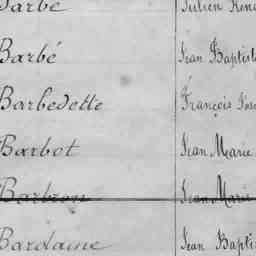 Barbe Julien René
Barbé Jean Baptiste
Barbedette François
Barbot Jean Marie
Barbron Jean Marie
Bardaine Jean Baptis